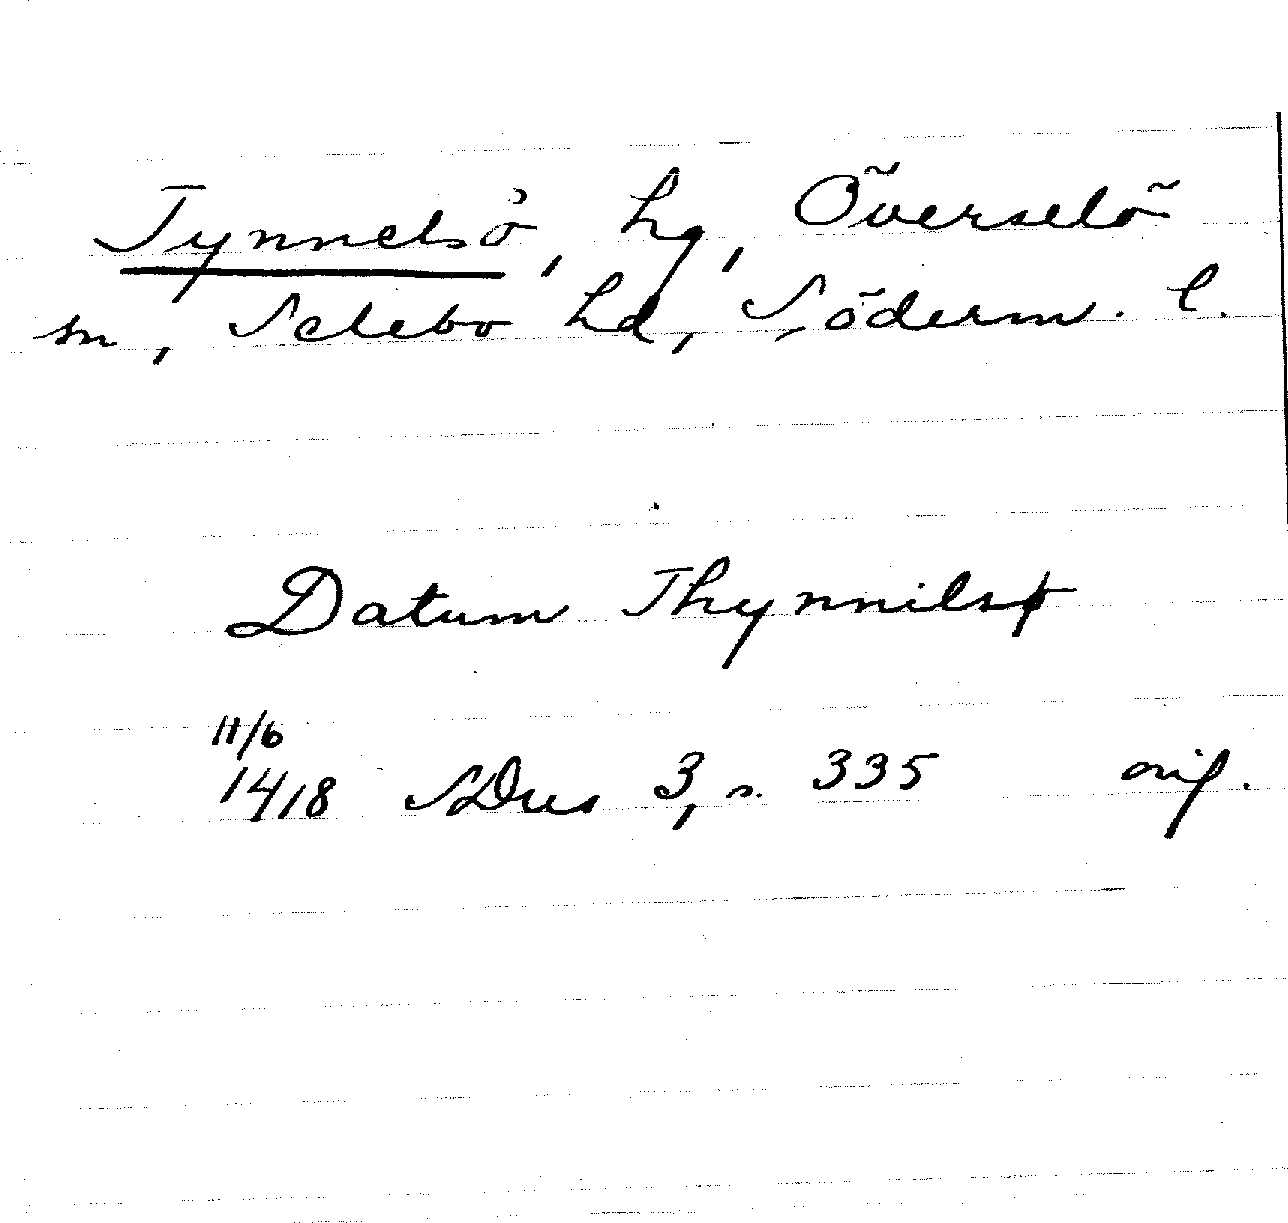 Tynnelsö, hg, Överselö
sn, Selebo hd, Söderm. l.
Datum Thynnilsø
11/6
1418 SDns 3, s. 335 orig.